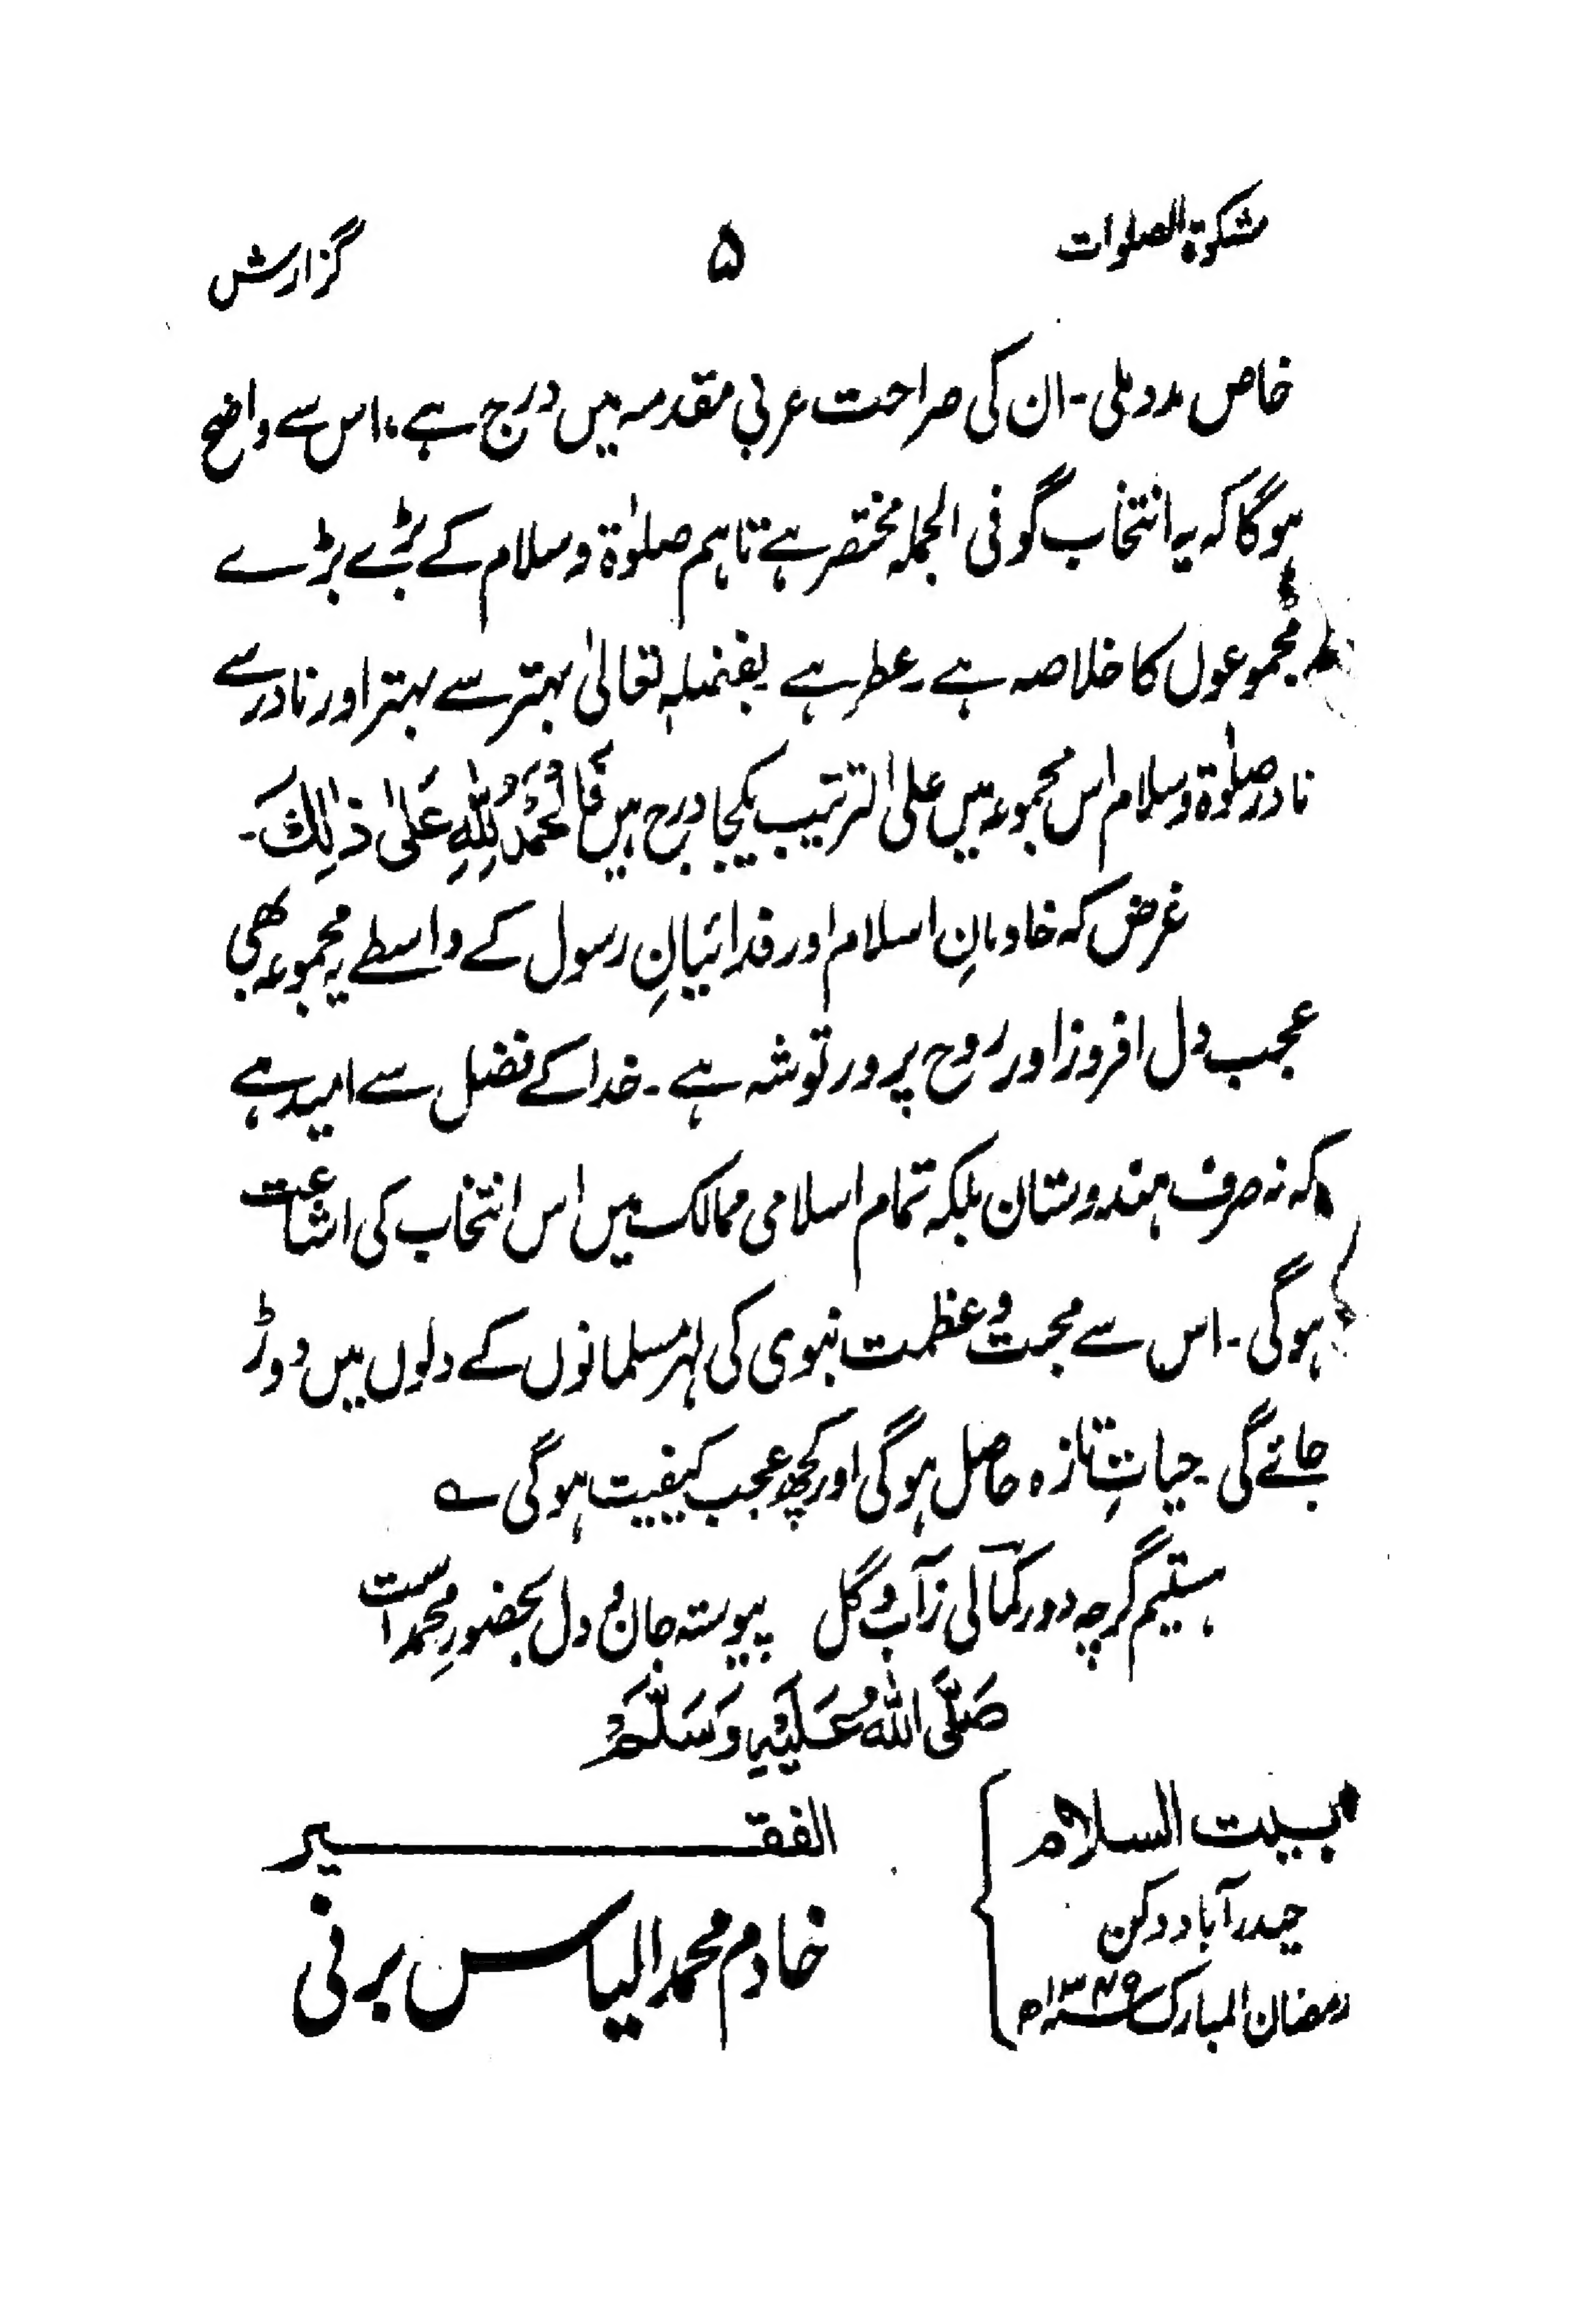 مشکوٰۃ الصلوات ۵ گزارش
خاص مدد ملی ۔ ان کی صراحت عربی مقدمہ میں درج ہے، اس سے واضح
ہوگا کہ یہ انتخاب گو فی الجملہ مختصر ہے تاہم صلوٰۃ و سلام کے بڑے بڑے
مجموعوں کا خلاصہ ہے ۔ عطر ہے بفضلہٖ تعالیٰ بہتر سے بہتر اور نادر سے
نادر صلوٰۃ و سلام اس مجموعہ میں علی الترتیب یکجا درج ہیں فَالْحَمْدُ لِلّٰہِ عَلیٰ ذٰلِکَ ۔
غرض کہ خادمانِ اسلام اور فدائیانِ رسول کے واسطے یہ مجموعہ بھی
عجب دل افروز اور روح پرور توشہ ہے ۔ خدا کے فضل سے امید ہے
کہ نہ صرف ہندوستان بلکہ تمام اسلامی ممالک میں اس انتخاب کی اشاعت
ہوگی ۔ اس سے محبت و عظمت نبوی کی لہر مسلمانوں کے دلوں میں دوڑ
جائے گی ۔ حیاتِ تازہ حاصل ہوگی اور کچھ عجب کیفیت ہوگی ؎
ہستیم گرچہ دور کمآلی زآب و گل پیوستہ جان و دل بحضورِ محمد است
صَلَّی اللہُ عَلَیْہِ وَسَلَّمْ
بیت السلام
حیدرآباد دکن
رمضان المبارک ۱۳۴۹ھ
الفقیر
خادم محمد الیاس برنی